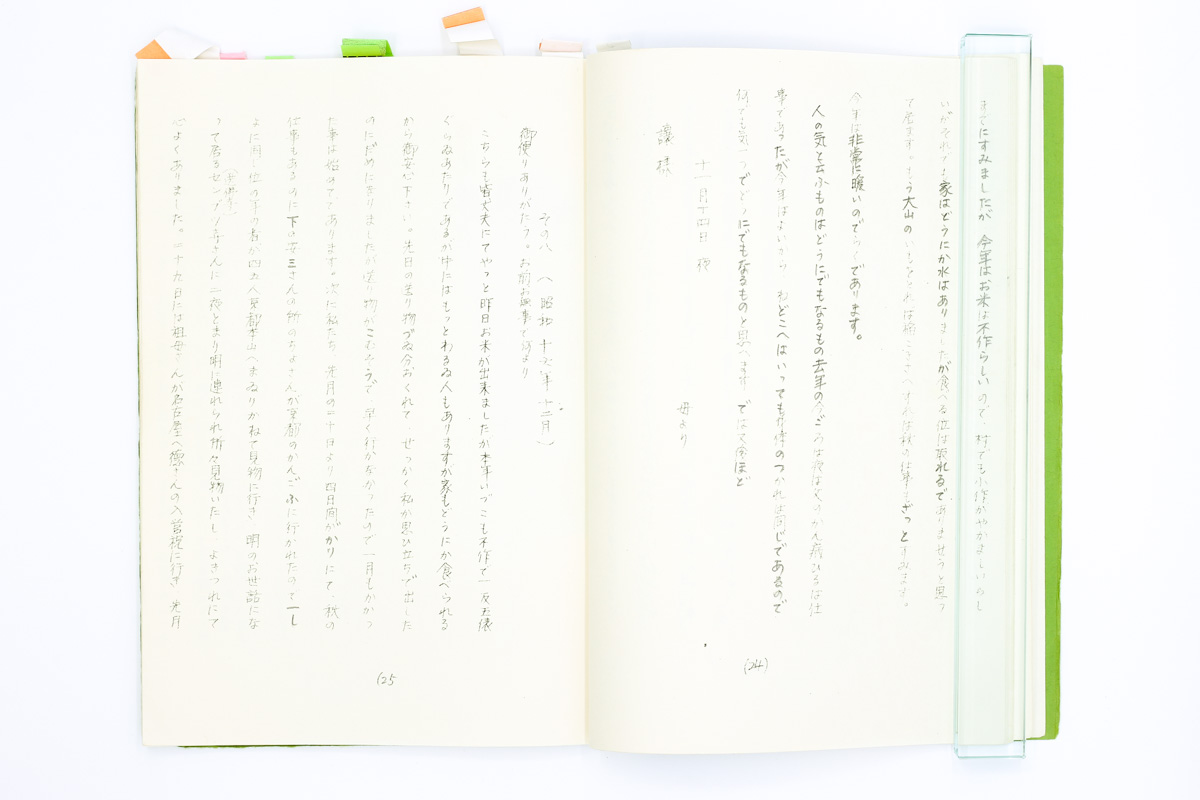 までにすみましたが 今年はお米は不作らしいので、村でも小作がやかましいらし
いがそれでも家はどうにか水はありましたが食べる位は取れるでありませうと思っ
て居ます。もう大山の
今年は非常に暖いのでらくであります。
人の気と云ふものはどうにでもなるもの去年の今ごろは夜は父のかん病ひるは仕
事であつたが今年はよいから ねどこへはいつても身体のつかれは同じであるので
何でも気一つでどうにでもなるものと思へます。ではる余ほど
十一月十四日 夜
母より
譲様
(24)
その八 (昭和十六年十二月)
御便りありがたう。お前お無事で
こちらも皆丈夫にてやっと昨日お米が出来ましたが本年いづこも不作で一反五俵
ぐらゐあたりであるが中にはもっとわるゐ人もありますが家もどうにか食べられる
から御安心下さい。先日の送り物づゐ分おくれて、せっかく私が思ひ立ちで出した
のにだめになりましたが送り物がこむさうで 早く行かなかったので一月もかかっ
た事は始めてであります。次に私たち、先月の二十日より四日間がかりにて、秋の
仕事もあるのに下の安三さんの所のちよさんが京都のかんごふに行かれたので一し
よに同じ位の年の者が四五人京都本山へまゐりかねて見物に行き 明のお世話にな
って居るセンプノ母さんに二夜とまり明に連れられ所々見物いたし、よきつれにて
心よくありました。二十九日には祖母さんが名古屋へ徳さんの入営祝に行き、先月
(25